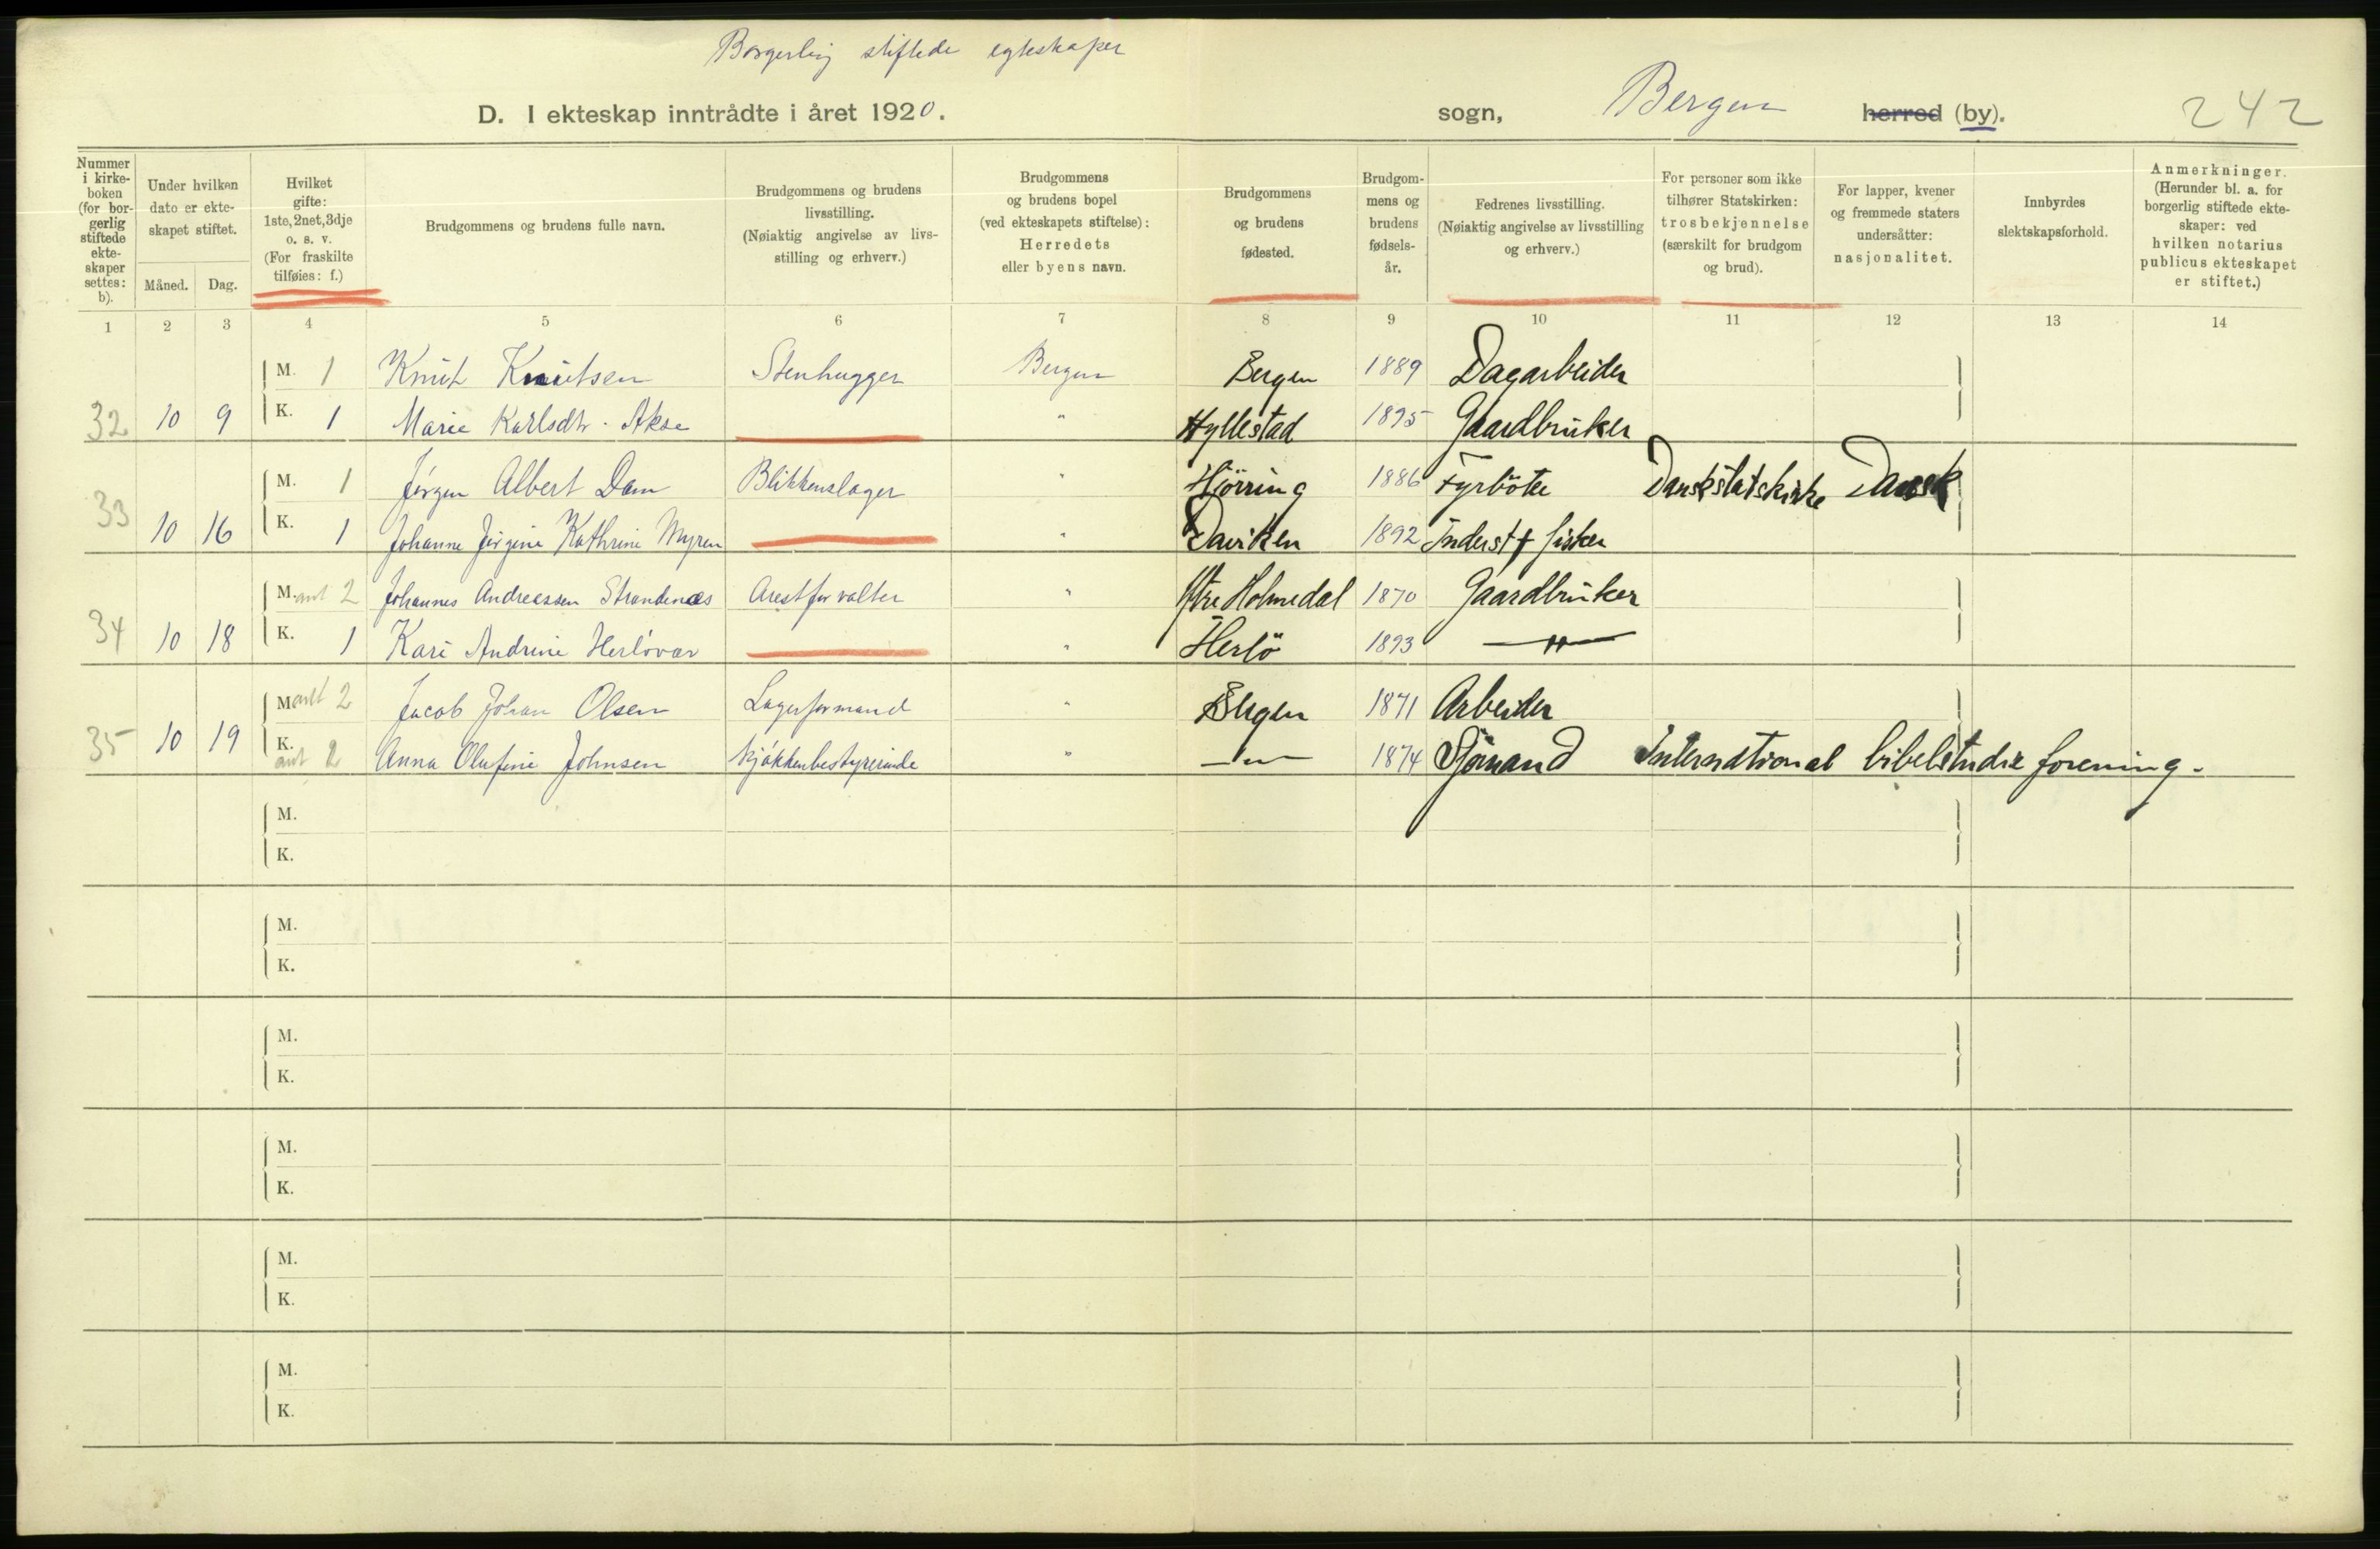 Borgerlig stiftede egteskaper
D. I ekteskap inntrådte i året 1920. sogn, Bergen herred (by). 242
Nummer i kirke-boken (for bor-gerlig stiftede ekte-skaper settes: b).
Under hvilken dato er ekte-skapet stiftet.
Måned. Dag.
Hvilket gifte: 1ste, 2net, 3dje o. s. v. (For fraskilte tilføies: f.)
Brudgommens og brudens fulle navn.
Brudgommens og brudens livsstilling. (Nøiaktig angivelse av livs-stilling og erhverv.)
Brudgommens og brudens bopel (ved ekteskapets stiftelse): Herredets eller byens navn.
Brudgommens og brudens fødested.
Brudgom-mens og brudens fødsels-år.
Fedrenes livsstilling. (Nøiaktig angivelse av livsstilling og erhverv.)
For personer som ikke tilhører Statskirken: trosbekjennelse (særskilt for brudgom og brud).
For lapper, kvener og fremmede staters undersåtter: nasjonalitet.
Innbyrdes slektskapsforhold.
Anmerkninger. (Herunder bl. a. for borgerlig stiftede ekte-skaper: ved hvilken notarius publicus ekteskapet er stiftet.)
1 2 3 4 5 6 7 8 9 10 11 12 13 14
M. 1 Knut Knutsen Stenhugger Bergen Bergen 1889 Dagarbeider
32 10 9 K. 1 Marie Karlsdtr. Akse " Hyllestad 1895 Gaardbruker
M. 1 Jörgen Albert Dam Blikkenslager " Hjörring 1886 Fyrböter Dansk statskirke Dansk
33 10 16 K. 1 Johanne Jörgine Kathrine Myren " Daviken 1892 Inderst & fisker
M. ant 2 Johannes Andreassen Strandenæs Arestforvalter " Ytre Holmedal 1870 Gaardbruker
34 10 18 K. 1 Kari Andrine Herlövær " Herlö 1893 —"—
M. ant 2 Jacob Johan Olsen Lagerformand " Bergen 1871 Arbeider
35 10 19 K. ant 2 Anna Olufine Johnsen Kjökkenbestyrerinde " —"— 1874 Sjömand International bibelstudie forening.
M.
K.
M.
K.
M.
K.
M.
K.
M.
K.
M.
K.